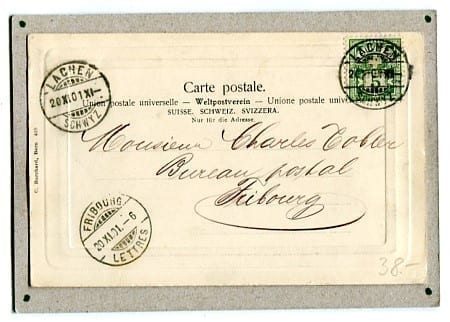 LACHEN
20.XI.01.XI-
SCHWYZ
LACHEN
5
Carte postale.
Union postale universelle. – Weltpostverein – Unione postale universale
SUISSE. SCHWEIZ. SVIZZERA.
Nur für die Adresse.
Monsieur Charles Tobler
Bureau postal
Fribourg
FRIBOURG
20.XI.01.-6
LETTRES
C. Borchard, Bern 425
38.-